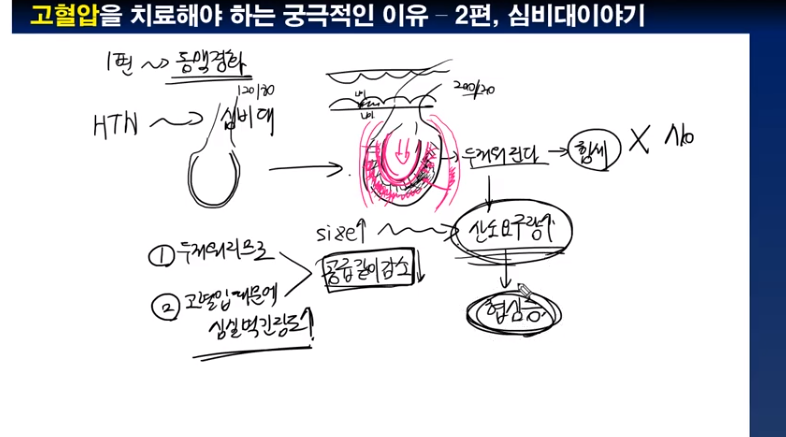 고혈압을 치료해야 하는 궁극적인 이유 - 2편, 심비대이야기
1편 동맥경화
120/80
HTN 심비대
200/
두꺼워진다 힘세 X No
size↑ 산소요구량↑
① 두꺼워지므로
공급 감소↓
② 고혈압때문에
심실벽긴장도↑
협심증